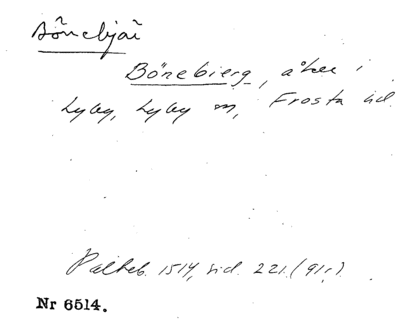 Bönebjär
Bönebierg, åker i
Lyby, Lyby sn, Frosta hd.
Palteb. 1514, sid. 221. (91r).
Nr 6514.